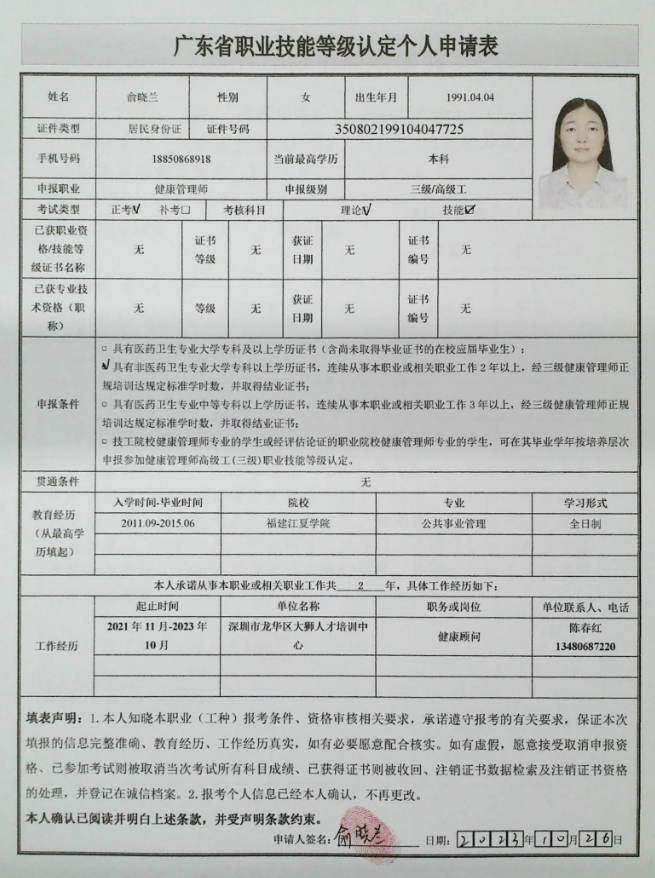 广东省职业技能等级认定个人申请表
姓名 俞晓兰 性别 女 出生年月 1991.04.04
证件类型 居民身份证 证件号码 350802199104047725
手机号码 18850868918 当前最高学历 本科
申报职业 健康管理师 申报级别 三级/高级工
考试类型 正考☑ 补考□ 考核科目 理论☑ 技能☑
已获职业资格/技能等级证书名称 无 证书等级 无 获证日期 无 证书编号 无
已获专业技术资格（职称） 无 等级 无 获证日期 无 证书编号 无
申报条件
□ 具有医药卫生专业大学专科及以上学历证书（含尚未取得毕业证书的在校应届毕业生）；
☑ 具有非医药卫生专业大学专科以上学历证书，连续从事本职业或相关职业工作2年以上，经三级健康管理师正
规培训达规定标准学时数，并取得结业证书；
□ 具有医药卫生专业中等专科以上学历证书，连续从事本职业或相关职业工作3年以上，经三级健康管理师正规
培训达规定标准学时数，并取得结业证书；
□ 技工院校健康管理师专业的学生或经评估论证的职业院校健康管理师专业的学生，可在其毕业学年按培养层次
申报参加健康管理师高级工(三级)职业技能等级认定。
贯通条件 无
教育经历（从最高学历填起）
入学时间-毕业时间 院校 专业 学习形式
2011.09-2015.06 福建江夏学院 公共事业管理 全日制
本人承诺从事本职业或相关职业工作共 2 年，具体工作经历如下：
工作经历
起止时间 单位名称 职务或岗位 单位联系人、电话
2021年11月-2023年10月 深圳市龙华区大狮人才培训中心 健康顾问 陈春红 13480687220
填表声明：1.本人知晓本职业（工种）报考条件、资格审核相关要求，承诺遵守报考的有关要求，保证本次
填报的信息完整准确、教育经历、工作经历真实，如有必要愿意配合核实。如有虚假，愿意接受取消申报资
格、已参加考试则被取消当次考试所有科目成绩、已获得证书则被收回、注销证书数据检索及注销证书资格
的处理，并登记在诚信档案。2.报考个人信息已经本人确认，不再更改。
本人确认已阅读并明白上述条款，并受声明条款约束。
申请人签名：俞晓兰 日期：2023年10月26日